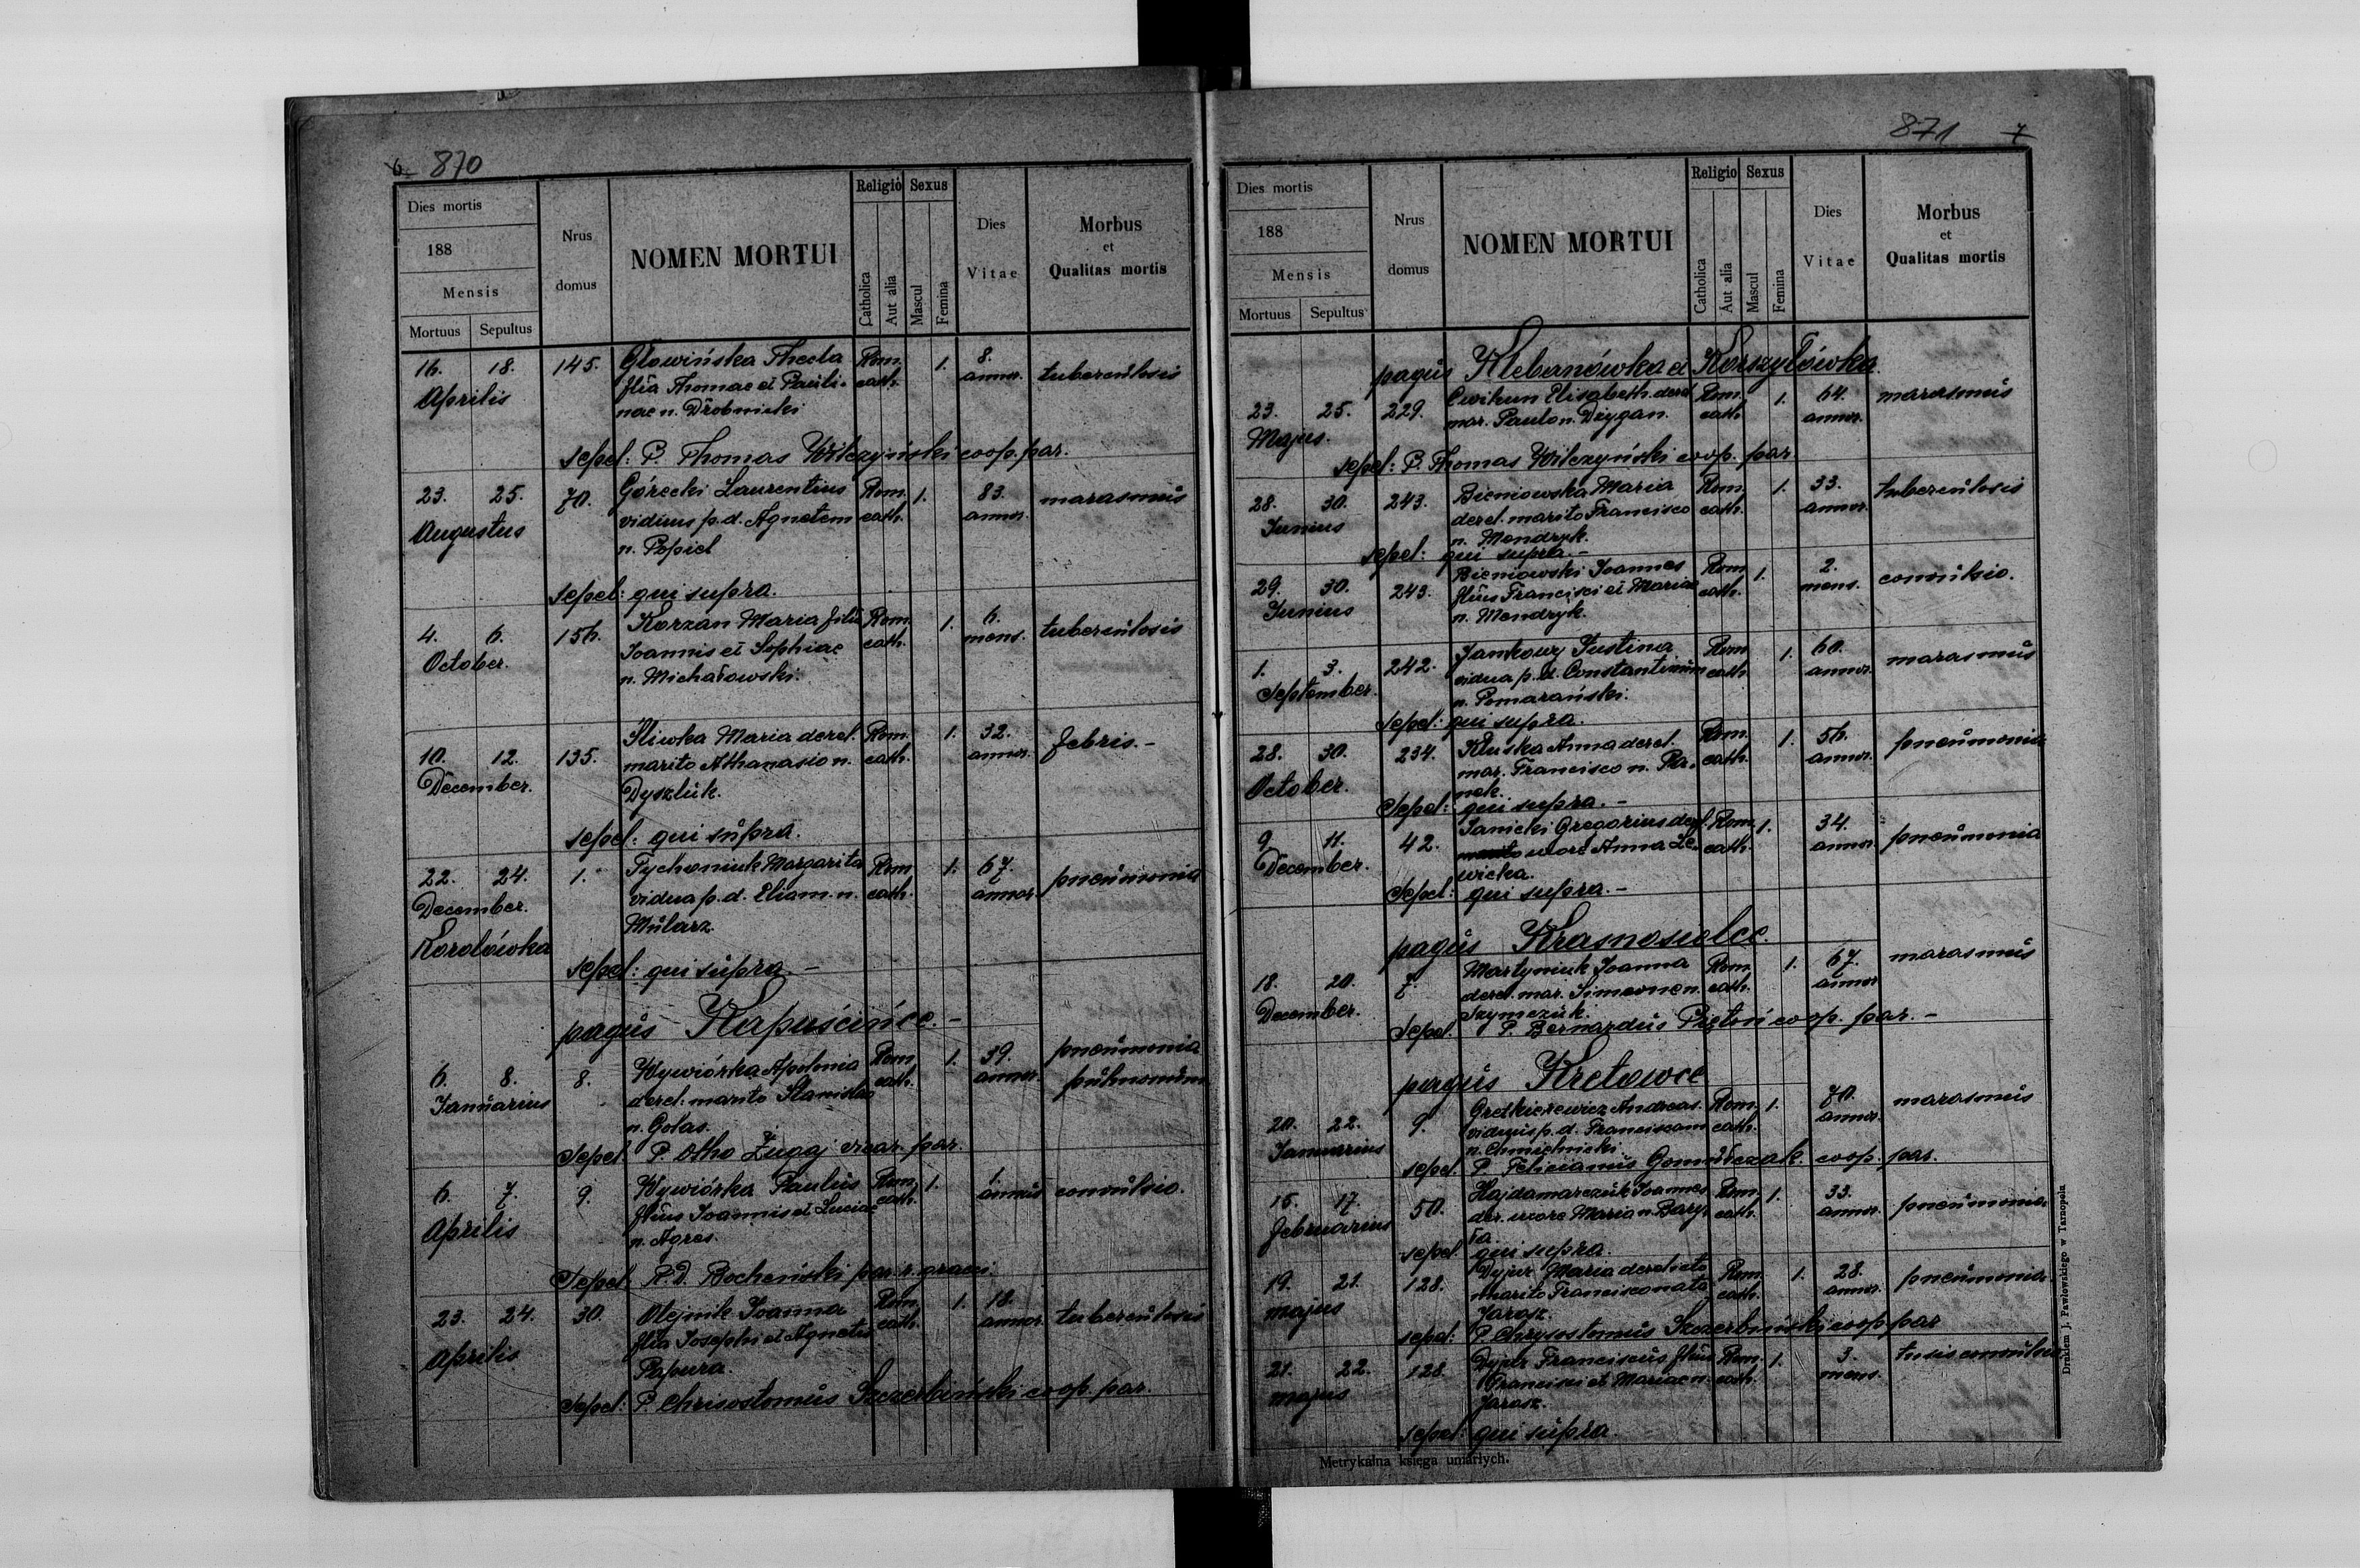 6 870
Dies mortis
188
Mensis
Mortuus Sepultus
Nrus domus
NOMEN MORTUI
Religio
Catholica
Aut alia
Sexus
Mascul
Femina
Dies Vitae
Morbus
et
Qualitas mortis
16. 18. 145. Głowińska Thecla Rom. 1. 8.
Aprilis filia Thomae et Pauli- cath. annor. tuberculosis
nae n. Drobnicki
sepel: P. Thomas Wilczyński coop. par.
23. 25. 70. Górecki Laurentius Rom. 1. 83. marasmus
Augustus viduus p. d. Agnetem cath. annor.
n. Popiel
sepel: qui supra.
4. 6. 156. Korzan Maria filia Rom. 1. 6. tuberculosis
October. Joannis et Sophiae cath. mens.
n. Michałowski.
10. 12. 135. Śliwka Maria derel. Rom. 1. 32. febris.-
December. marito Athanasio n. cath. annor.
Dyszluk.
sepel: qui supra.
22. 24. 1. Tychoniuk Margarita Rom. 1. 67. pneumonia
December. vidua p. d. Eliam. n. cath. annor.
Korolówka Mularz.
sepel: qui supra.-
pagus Kapuścińce.-
6. 8. 8. Wywiórka Apolonia Rom. 1. 39. pneumonia
Januarius derel: marito Stanislao cath. annor. pulmonum
n. Gołas.
Sepel. P. Otho Zugaj vicar. par.
6. 7. 9. Wywiórka Paulus Rom. 1. 1. convulsio.
Aprilis filius Joannis et Luciae cath. annus
n. Agres.
Sepel. R. D. Bocheński par. r. graeci.
23. 24. 30. Olejnik Joanna Rom. 1. 18. tuberculosis
Aprilis filia Josephi et Agnetis cath. annor.
Papura.
Sepel: P. Chrisostomus Szczerbiński coop. par.
871 7
Dies mortis
188
Mensis
Mortuus Sepultus
Nrus domus
NOMEN MORTUI
Religio
Catholica
Aut alia
Sexus
Mascul
Femina
Dies Vitae
Morbus
et
Qualitas mortis
pagus Klebanówka et Korszyłówka.
23. 25. 229. Cwikun Elisabeth. derel Rom. 1. 64. marasmus
Majus. mar. Paulo n. Dzygan. cath. annor.
sepel: P. Thomas Wilczyński coop. par.
28. 30. 243. Bieniowska Maria Rom. 1. 33. tuberculosis
Junius derel. marito Francisco cath. annor.
n. Mendryk.
sepel: qui supra.-
29. 30. 243. Bieniowski Joannes Rom. 1. 2. convulsio.
Junius filius Francisci et Mariae cath. mens.
n. Mendryk.
1. 3. 242. Jankowy Justina Rom. 1. 60. marasmus
September. vidua p. d. Constantinum cath. annor.
n. Pomarański.
Sepel: qui supra.
28. 30. 234. Kluska Anna derel. Rom. 1. 56. pneumonia
October. mar. Francisco n. Pla- cath. annor.
nek.
Sepel: qui supra.-
9. 11. 42. Janicki Gregorius derel. Rom. 1. 34. pneumonia
December. marito uxore Anna Le- cath. annor.
wicka.
Sepel: qui supra.-
pagus Krasnosielce.
18. 20. 7. Martyniuk Joanna Rom. 1. 67. marasmus
December. derel. mar. Simeone n. cath. annor
Szymczuk.
Sepel. P. Bernardus Pięton coop. par.-
pagus Kretowce
20. 22. 9. Gretkierewicz Andreas. Rom. 1. 70. marasmus
Januarius viduus p. d. Franciscam cath. annor.
n. Chmielnicki.
sepel. P. Felicianus Gomułczak. coop. par.
15. 17. 50. Hajdamarczuk Joannes Rom. 1. 33. pneumonia
februarius der. uxore Maria n. Bary- cath. annor.
ła.
sepel. qui supra.
19. 21. 128. Dyjur Maria derelicta Rom. 1. 28. pneumonia
majus marito Francisco nata cath. annor.
Jarosz.
sepel: P. Chrysostomus Szczerbiński coop par
21. 22. 128. Dyjur Franciscus filius Rom. 1. 3. tusis convulsiva
majus Francisci et Mariae n. cath. mens.
Jarosz.
sepel: qui supra.
Metrykalna księga umarłych.
Drukiem J. Pawłowskiego w Tarnopolu